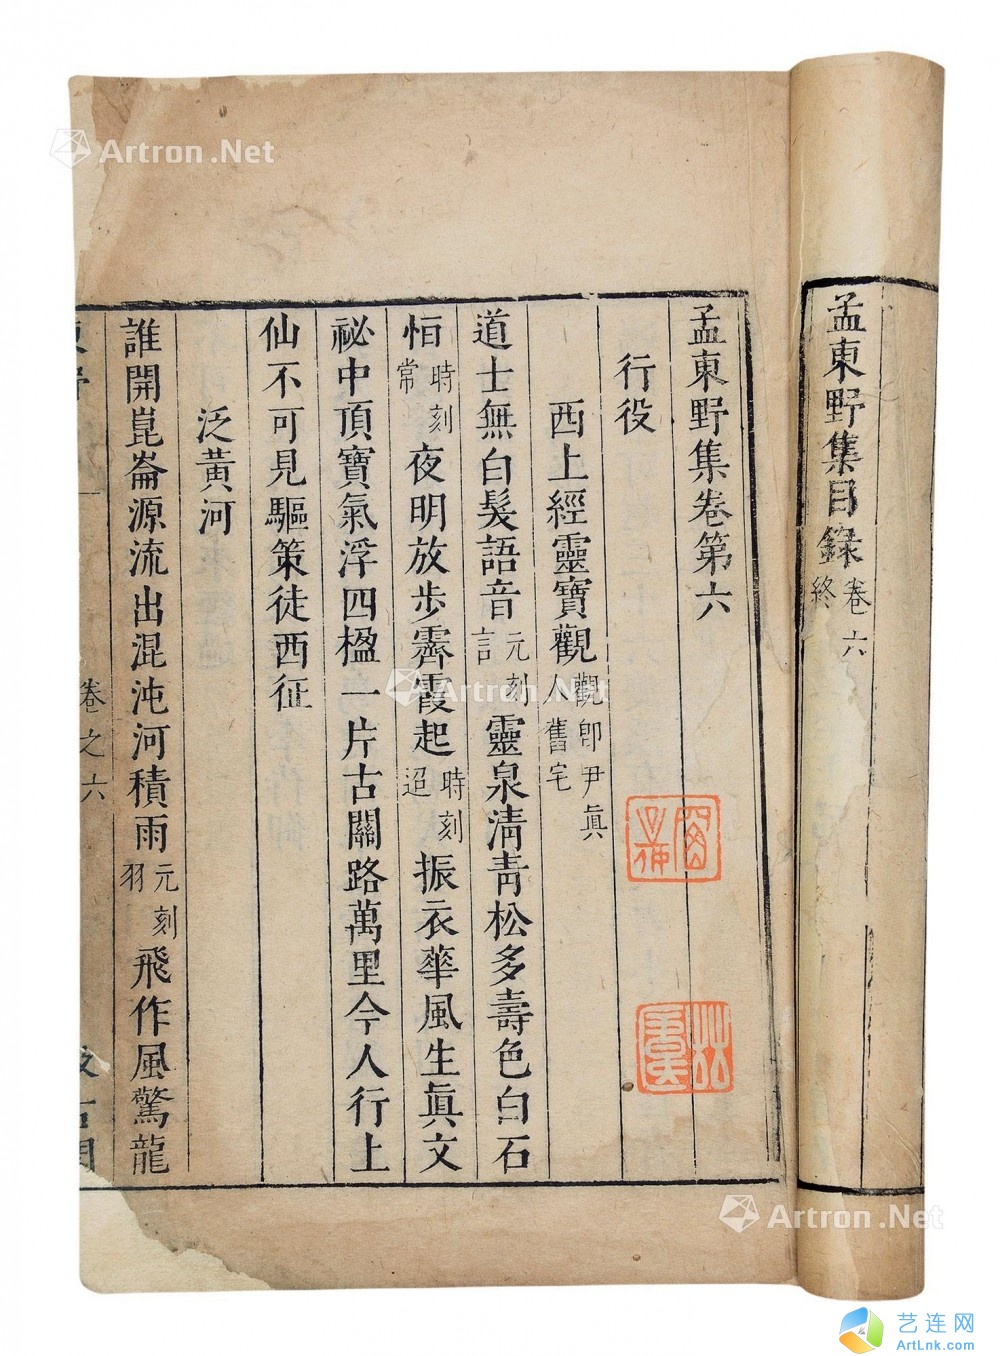 孟東野集目錄 卷六終
孟東野集卷第六
行役
西上經靈寶觀 觀卽尹眞人舊宅
道士無白髮語音 元刻言 靈泉淸靑松多壽色白石
恒 時刻常 夜明放步霽霞起 時刻迢 振衣華風生眞文
祕中頂寶氣浮四楹一片古關路萬里今人行上
仙不可見驅策徒西征
泛黃河
誰開崑崙源流出混沌河積雨 元刻羽 飛作風驚龍
卷之六
Artron.Net
Artron.Net
Artron.Net
艺连网
ArtLnk.com